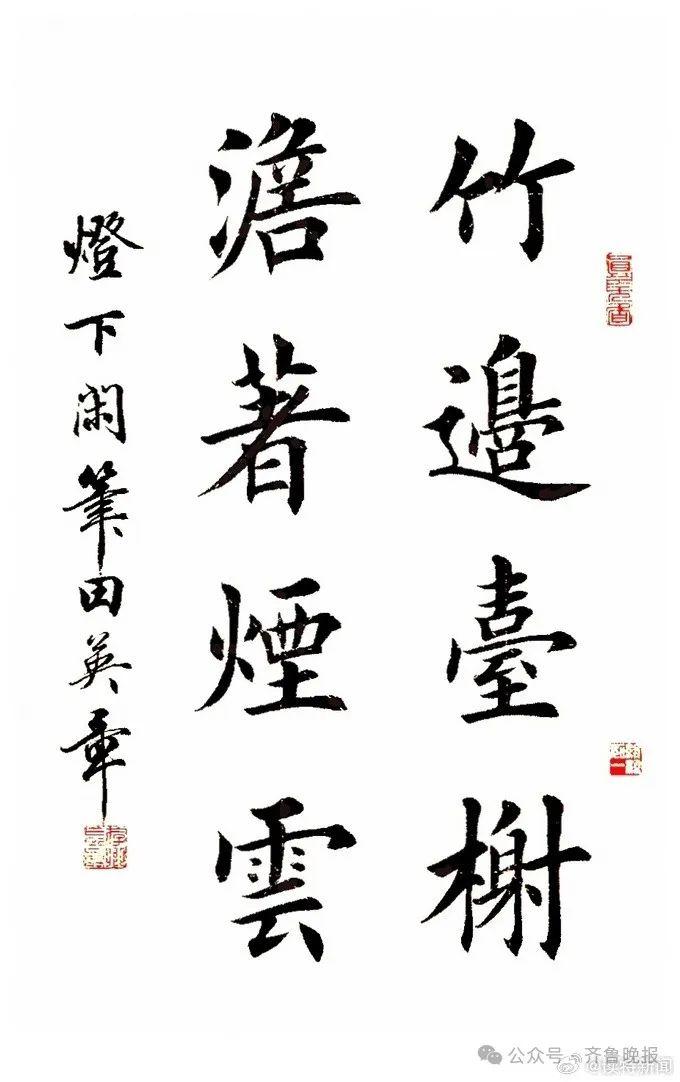 竹邉臺榭
澹著煙雲
燈下閑筆田英章
公众号·齐鲁晚报
@读特新闻